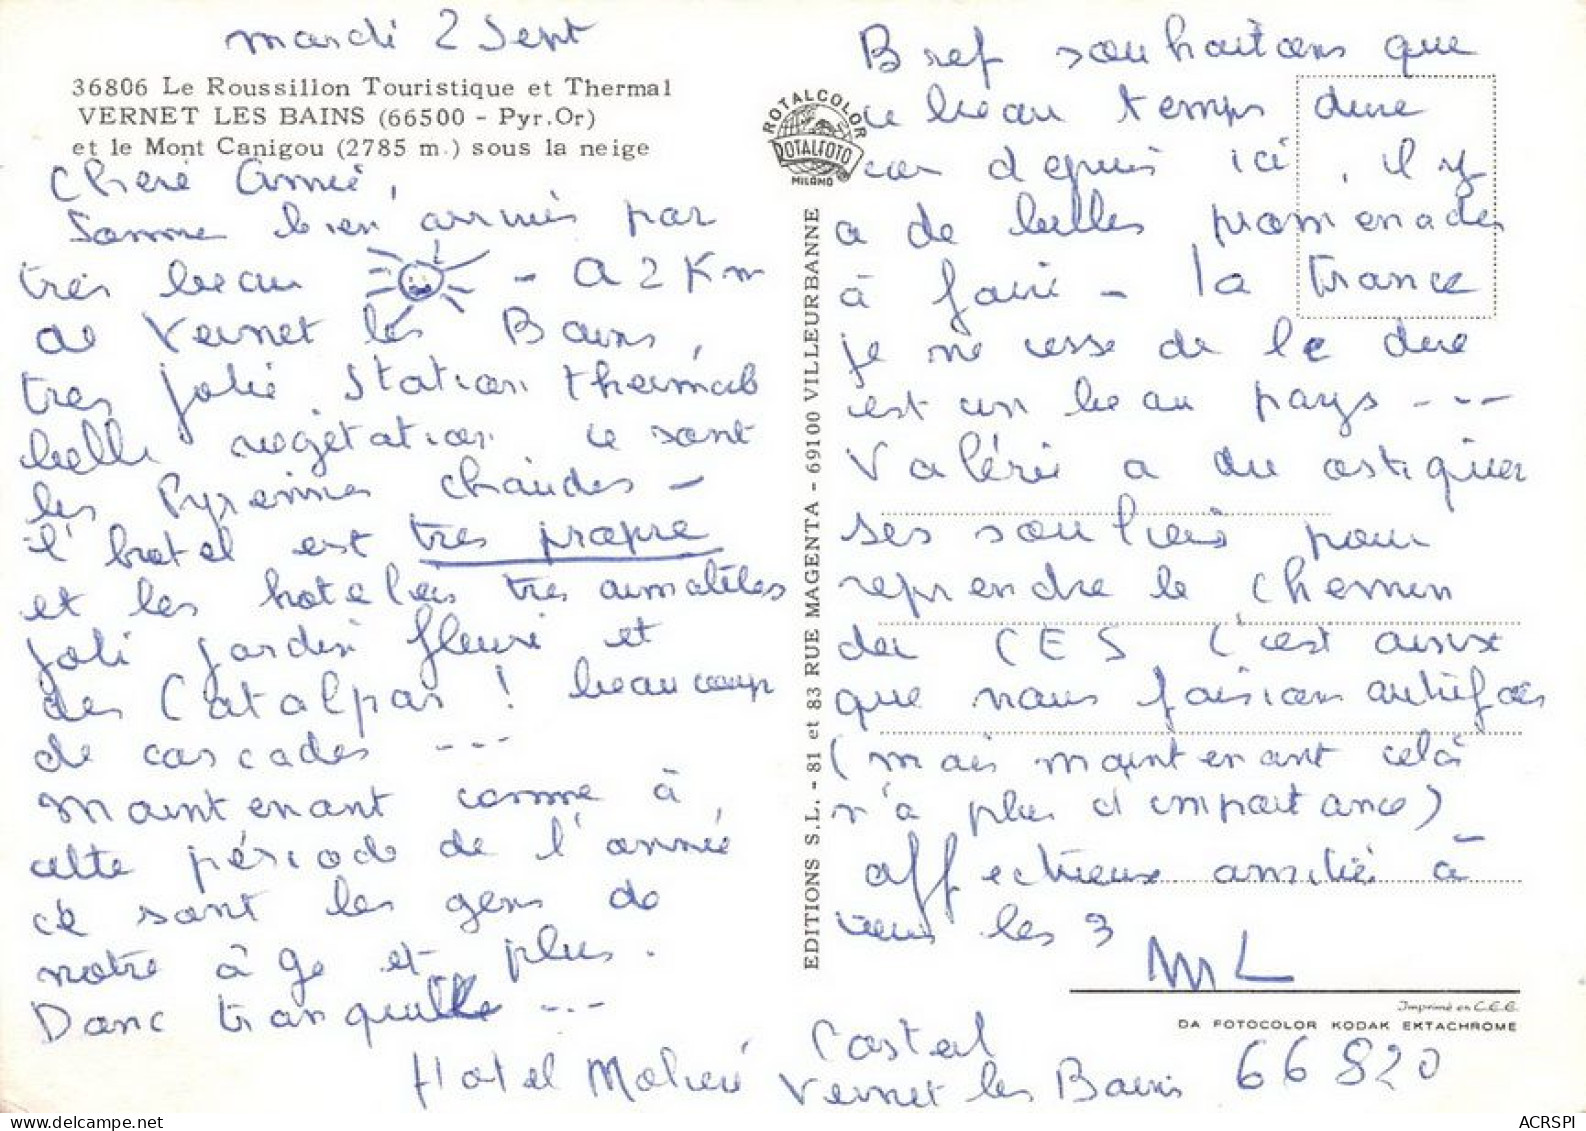 mardi 2 Sept
36806 Le Roussillon Touristique et Thermal
VERNET LES BAINS (66500 - Pyr.Or)
et le Mont Canigou (2785 m.) sous la neige
Chère Amie,
Somme bien arrivés par
très beau - A 2 Km
de Vernet les Bains,
tres jolie Station thermale
belle vegetation ce sont
les Pyrennes chaudes -
l'hotel est tres propre
et les hoteliers tres aimables
joli jardin fleuri et
des Catalpas ! beaucoup
de cascades ---
Maintenant comme à
cette période de l'année
ce sont les gens de
notre âge et plus.
Donc tranquille ---
Hotel Molière
Bref souhaitons que
ce beau temps dure
car depuis ici, il y
a de belles promenades
à faire - la France
je ne cesse de le dire
est un beau pays ---
Valérie a du astiquer
ses souliers pour
reprendre le chemin
du CES c'est ainsi
que nous faisions autrefois
(mais maintenant celà
n'a plus d'importance)
affectueuse amitié à
vous les 3
ML
Casteil
Vernet les Bains 66820
ROTALCOLOR
ROTALFOTO
MILANO
EDITIONS S.L. - 81 et 83 RUE MAGENTA - 69100 VILLEURBANNE
Imprimé en C.E.E.
DA FOTOCOLOR KODAK EKTACHROME
ACRSPI